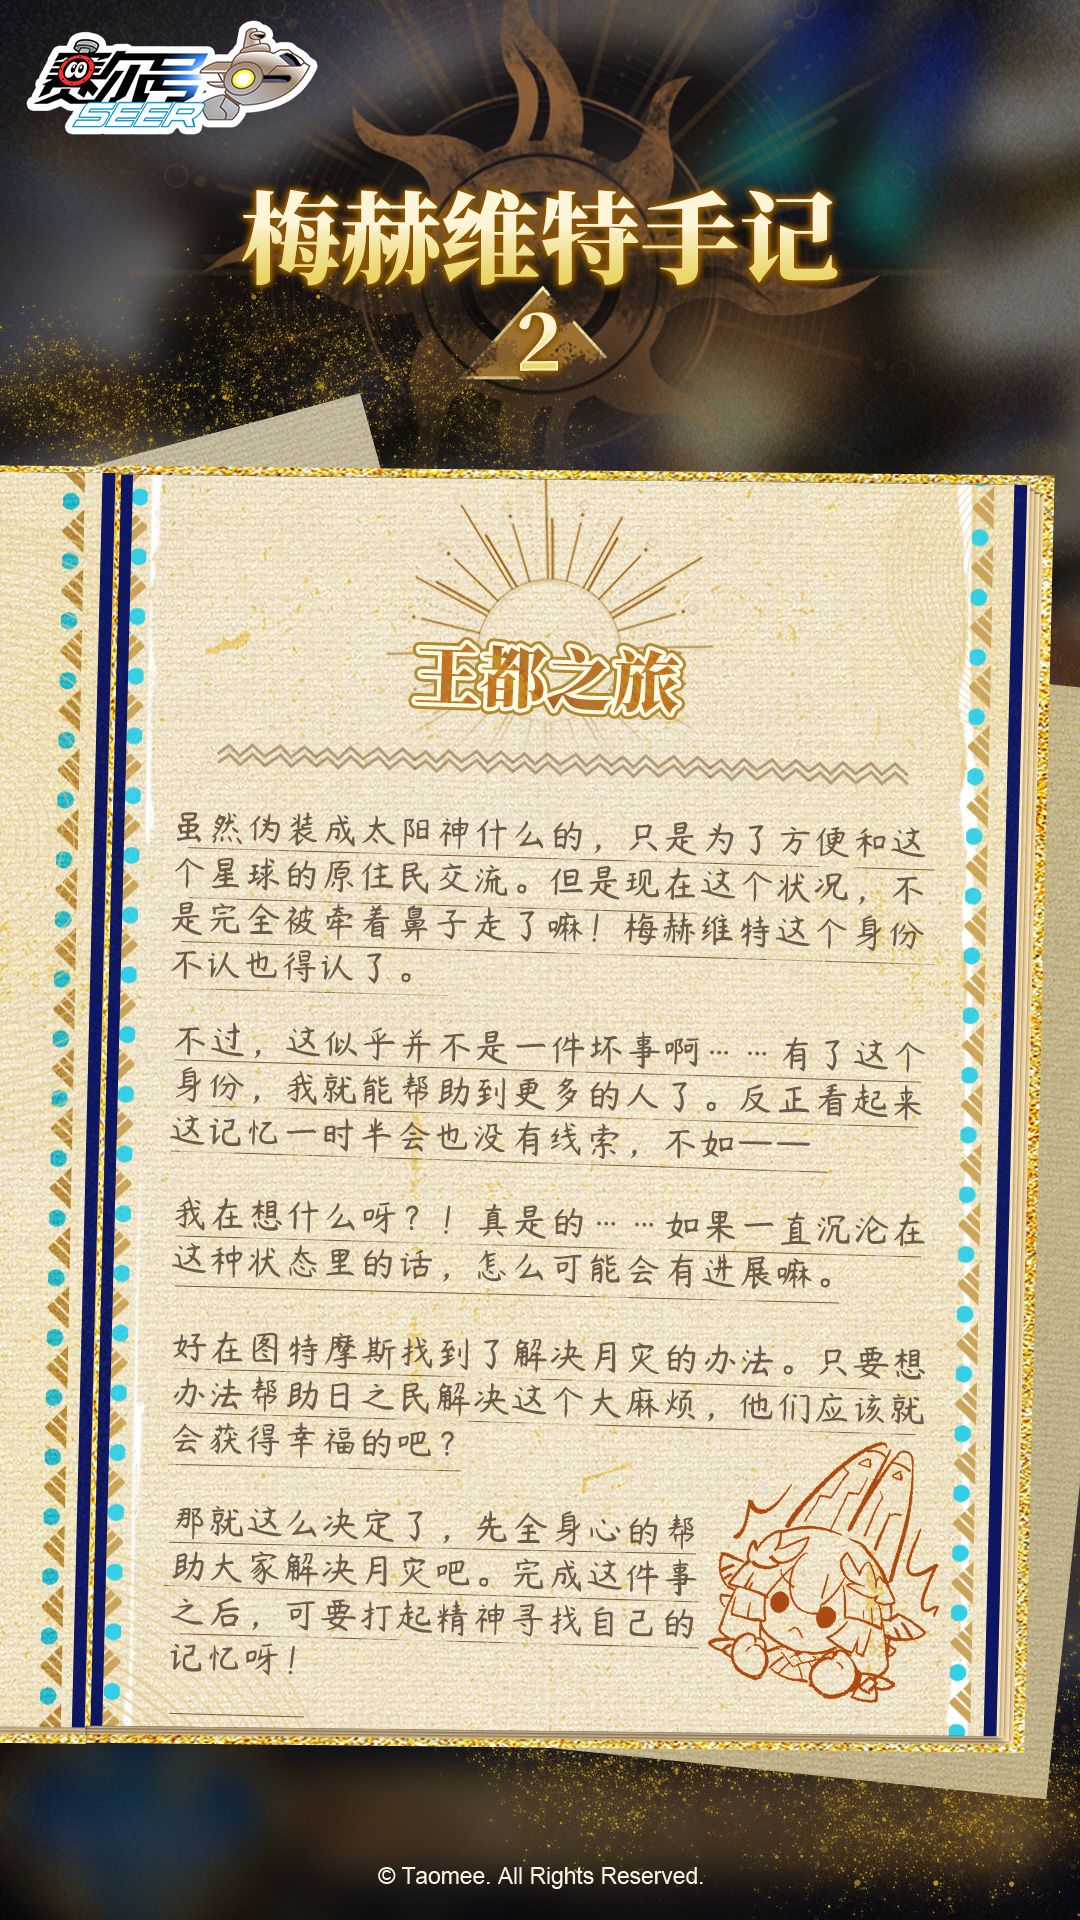 赛尔号
SEER
梅赫维特手记
2
王都之旅
虽然伪装成太阳神什么的，只是为了方便和这
个星球的原住民交流。但是现在这个状况，不
是完全被牵着鼻子走了嘛！梅赫维特这个身份
不认也得认了。
不过，这似乎并不是一件坏事啊……有了这个
身份，我就能帮助到更多的人了。反正看起来
这记忆一时半会也没有线索，不如——
我在想什么呀？！真是的……如果一直沉沦在
这种状态里的话，怎么可能会有进展嘛。
好在图特摩斯找到了解决月灾的办法。只要想
办法帮助日之民解决这个大麻烦，他们应该就
会获得幸福的吧？
那就这么决定了，先全身心的帮
助大家解决月灾吧。完成这件事
之后，可要打起精神寻找自己的
记忆呀！
© Taomee. All Rights Reserved.